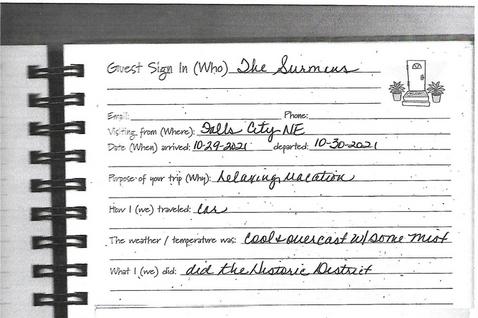 Guest Sign In (Who) The Surmeus
Email: Phone:
Visiting from (Where): Falls City NE
Date (When) arrived: 10-29-2021 departed: 10-30-2021
Purpose of your trip (Why): Relaxing Vacation
How I (we) traveled: Car
The weather / temperature was: Cool & overcast w/some mist
What I (we) did: did the Historic District